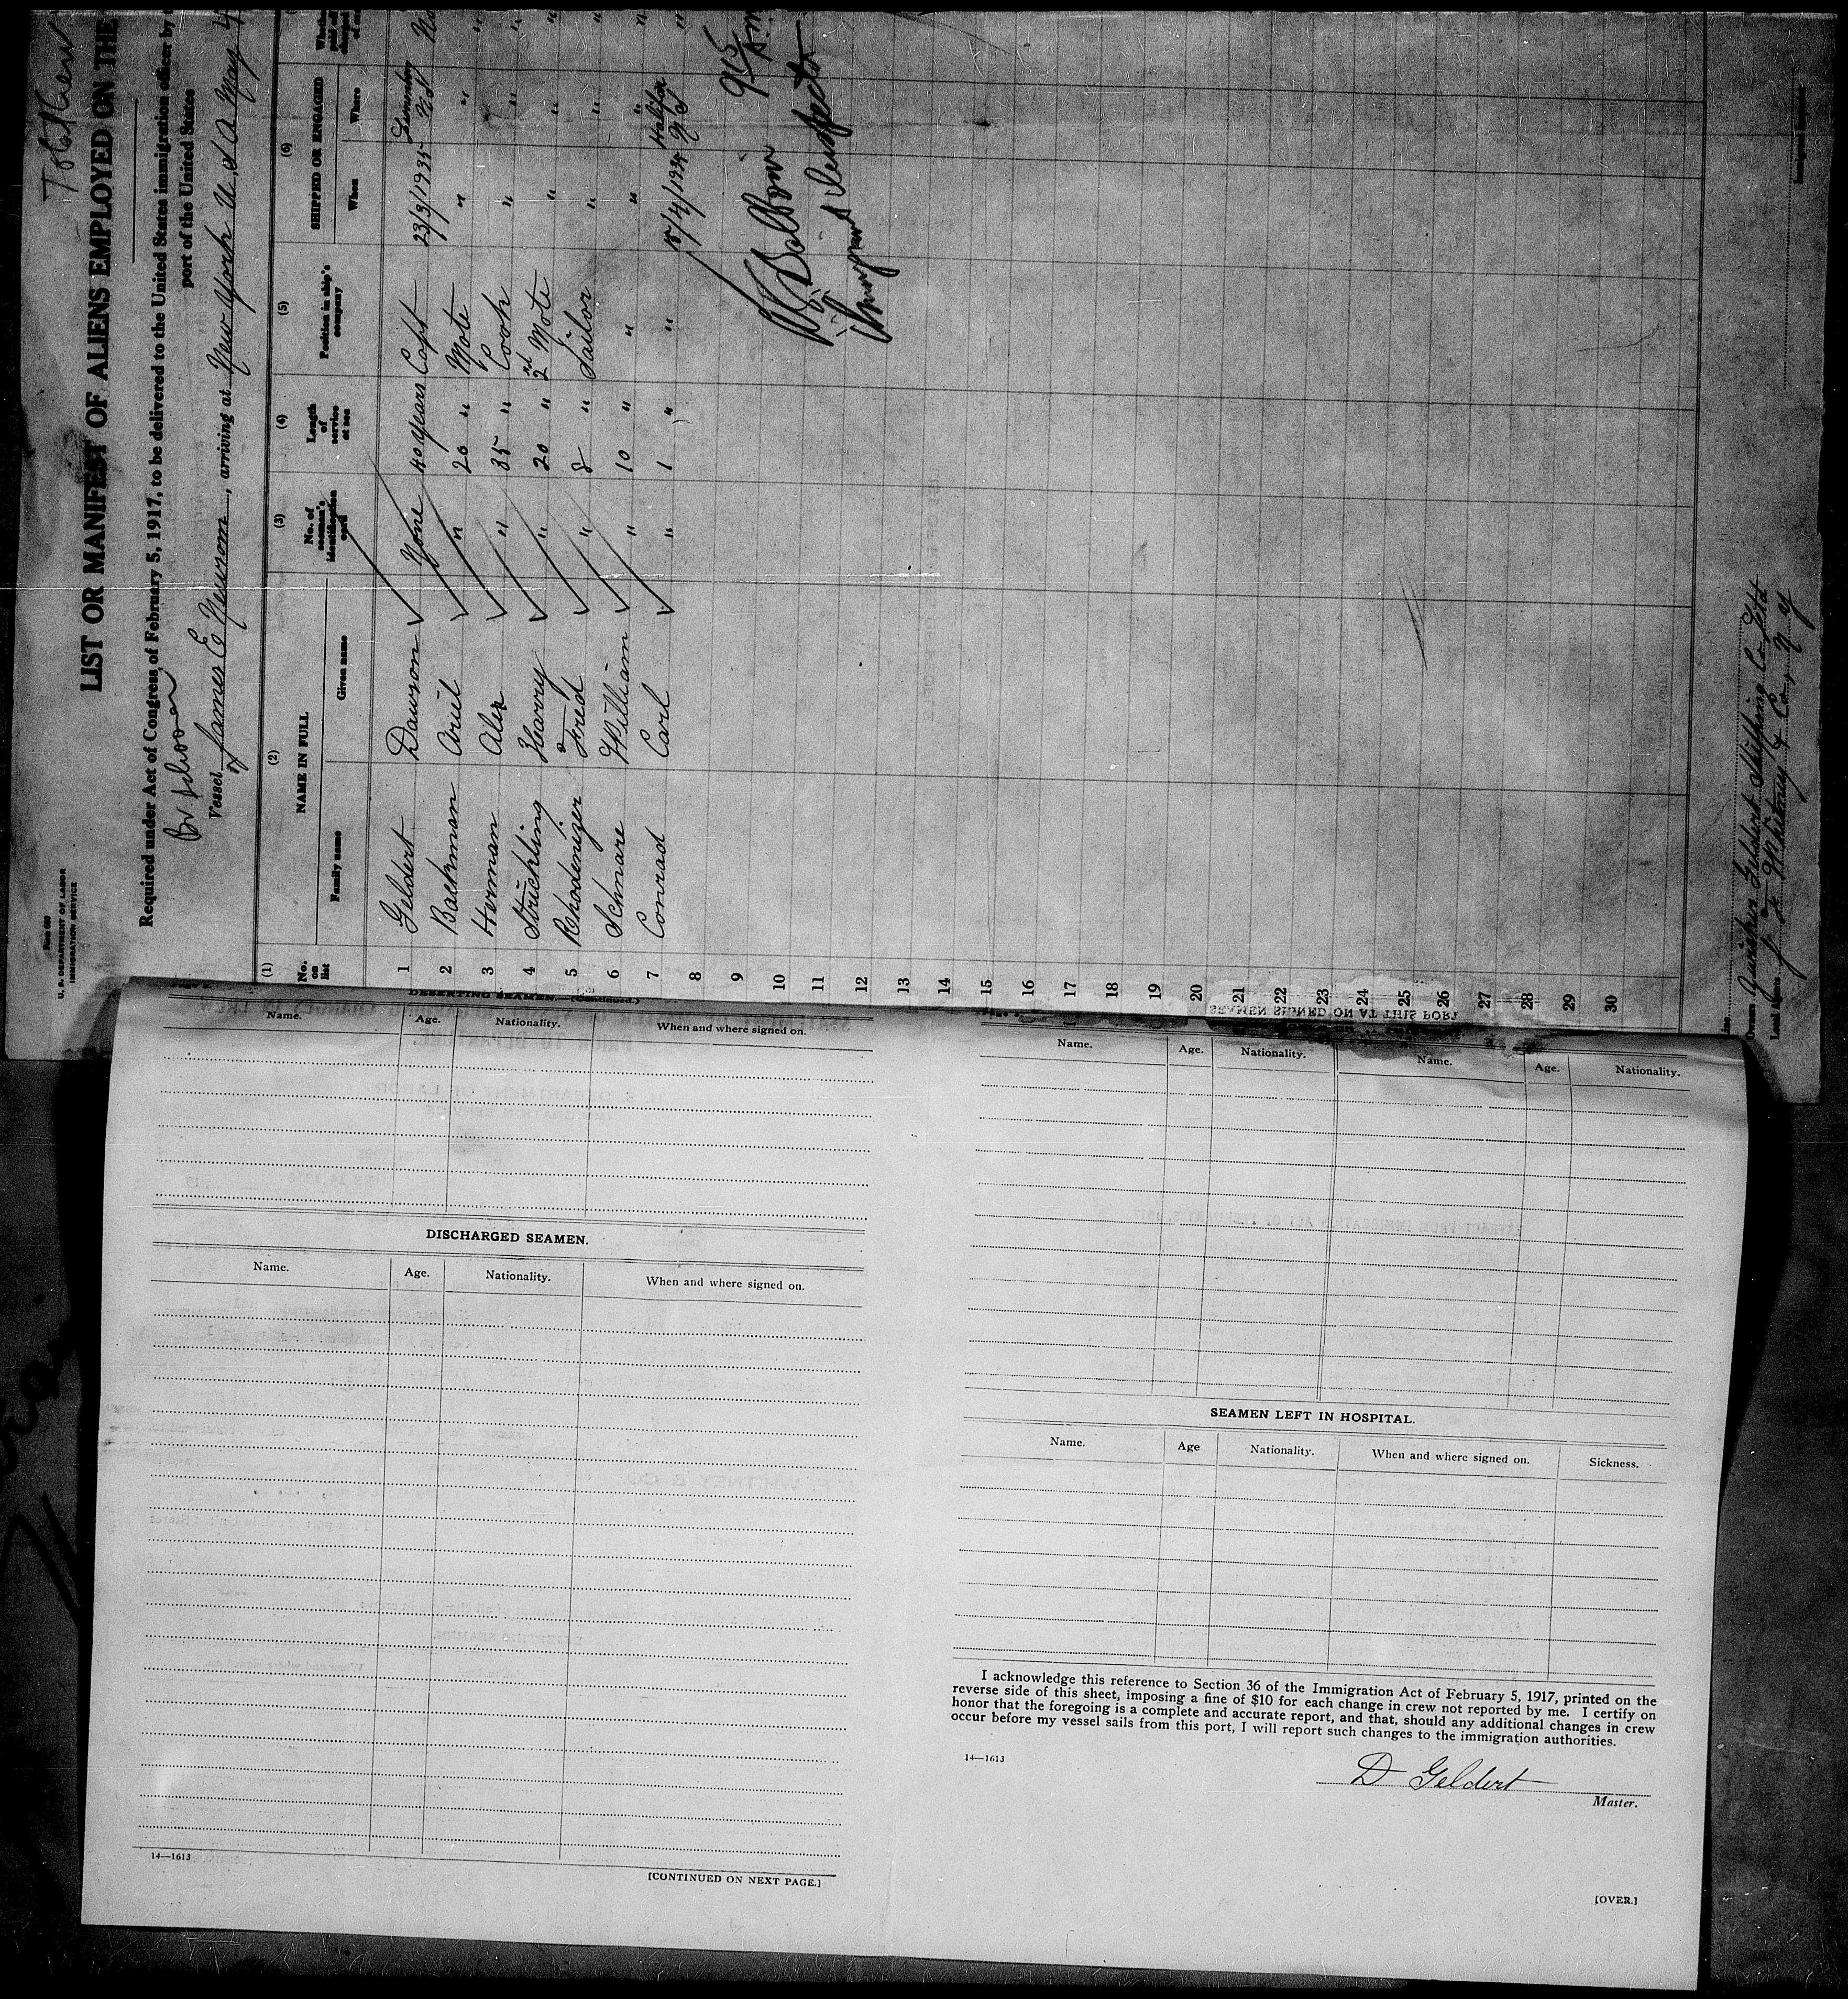 Form 680
U. S. DEPARTMENT OF LABOR
IMMIGRATION SERVICE
LIST OR MANIFEST OF ALIENS EMPLOYED ON THE
Required under Act of Congress of February 5, 1917, to be delivered to the United States immigration officer by
port of the United States
Br Schooner
Vessel James E Newsom, arriving at New York U.S.A May 4
(1) (2) (3) (4) (5) (6)
No. on list NAME IN FULL No. of seaman's identification card Length of service at sea Position in ship's company SHIPPED OR ENGAGED
Family name Given name When Where
1 Geldert Dawson None 40 years Capt 23/3/1935 N.S No
2 Backman Ariel " 26 " Mate " "
3 Herman Alex " 35 " Cook " "
4 Strickling Harry " 20 " 2nd Mate " "
5 Rhodenizer Fred " 8 " Sailor " "
6 Schnare William " 10 " " " "
7 Conrad Carl " 1 " " 15/4/1935 Halifax N.S
8
9
10
11
12
13
14
15
16
17
18
19
20
21
22
23
24
25
26
27
28
29
30
Immigrant Inspector
Owners Zwicker Geldert Shipping Co Ltd
Local Agents J F Whitney & Co., N Y
DESERTING SEAMEN.—(Continued.)
Name. Age. Nationality. When and where signed on.
DISCHARGED SEAMEN.
Name. Age. Nationality. When and where signed on.
14—1613
[CONTINUED ON NEXT PAGE.]
SEAMEN SIGNED ON AT THIS PORT
Name. Age. Nationality. Name. Age. Nationality.
SEAMEN LEFT IN HOSPITAL.
Name. Age Nationality. When and where signed on. Sickness.
I acknowledge this reference to Section 36 of the Immigration Act of February 5, 1917, printed on the
reverse side of this sheet, imposing a fine of $10 for each change in crew not reported by me. I certify on
honor that the foregoing is a complete and accurate report, and that, should any additional changes in crew
occur before my vessel sails from this port, I will report such changes to the immigration authorities.
14—1613
D Geldert
Master.
[OVER.]